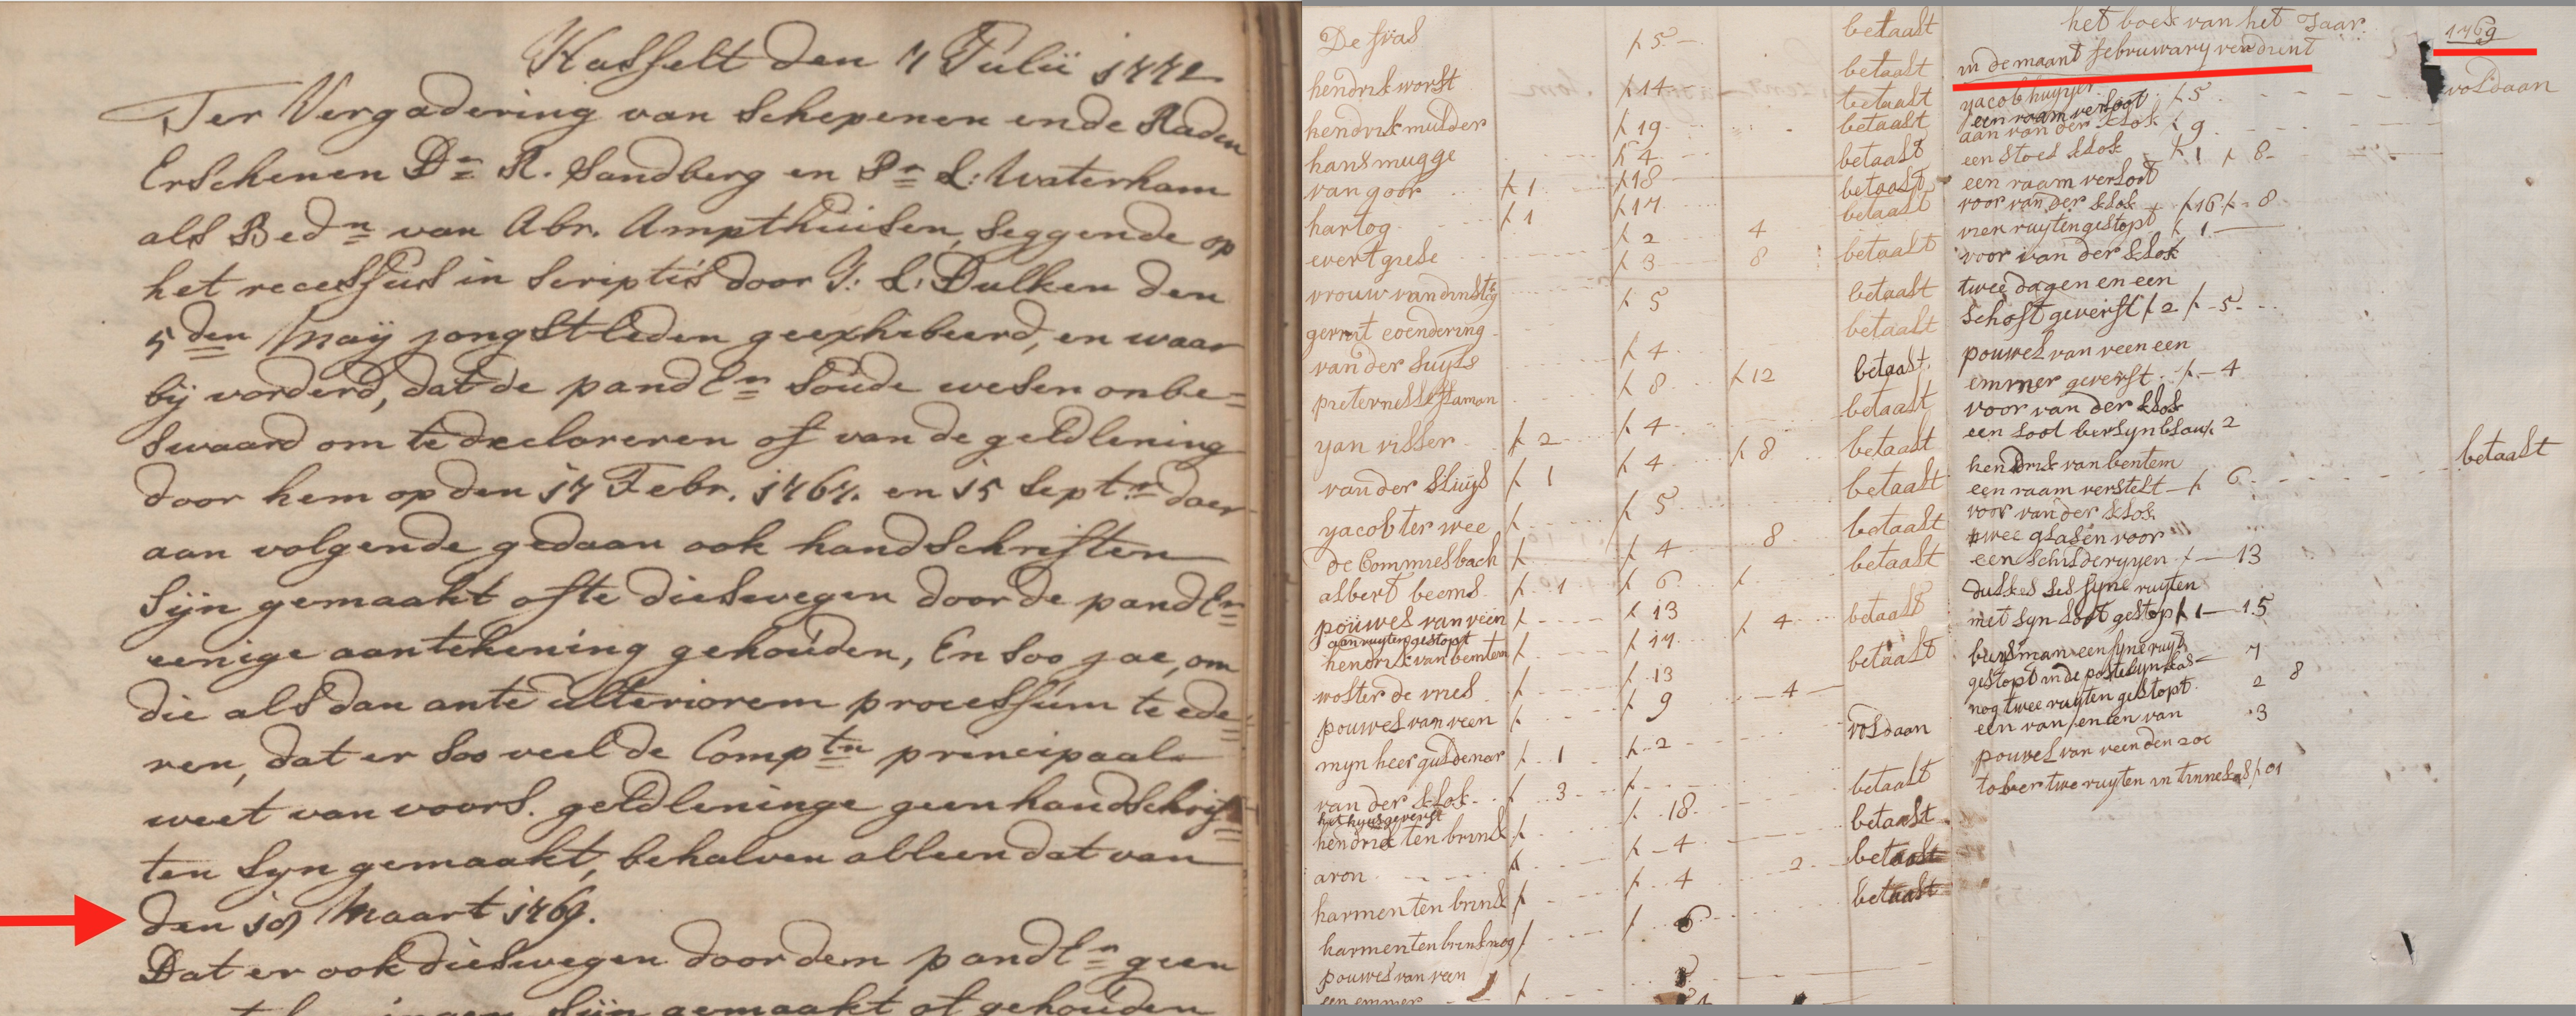 Hasselt den 7 Julii 1772
Ter Vergadering van Schepenen ende Raden
Erschenen Dr R. Sandberg en Pr L: Waterham
als Bedn van Abr. Ampthuisen, seggende op
het recessus in scriptis door J: L: Dulken den
5den Maij jongstleden geexhibeerd, en waar
bij vorderd, dat de pandln soude wesen onbe=
swaard om te declareren of van de geldlening
door hem op den 17 Febr. 1767. en 15 Septr daer
aan volgende gedaan ook handschriften
sijn gemaakt ofte dieswegen door de pandln
eenige aantekening gehouden, En soo jae, om
die als dan ante ulteriorem processum te ede=
ren, dat er soo veel de Comptn principaal
weet van voors. geldleninge geen handschrif=
ten syn gemaakt, behalven alleen dat van
den 18 Maart 1769.
Dat er ook dieswegen door dem pandln geen
sijn gemaakt of gehouden
De fras ƒ 5 — betaalt
hendrik worst ƒ 14 betaalt
hendrik mulder ƒ 19 betaalt
hans mugge ƒ 4 betaalt
van goor ƒ 1 ƒ 18 betaalt
hartog ƒ 1 ƒ 17 betaalt
evert grese ƒ 2 4 betaalt
ƒ 3 8 betaalt
gerrit eoendering ƒ 5 betaalt
van der sluys ƒ 4 betaalt
pieter nesse ƒ 8 ƒ 12 betaalt
yan visser ƒ 2 ƒ 4 betaalt
van der sluys ƒ 1 ƒ 4 ƒ 8 betaalt
yacob ter wee ƒ ƒ 5 betaalt
de Commies bach ƒ ƒ 4 8 betaalt
albert beems ƒ 1 ƒ 6 ƒ betaalt
pouwes van veen ƒ ƒ 13 ƒ 4 betaalt
aan ruyten gestopt
hendrik van bemtem ƒ ƒ 17 betaalt
wolter de vries ƒ ƒ 13
pouwes van veen ƒ ƒ 9 4
myn heer guldenar ƒ 1 ƒ 2 voldaan
van der klok ƒ 3 ƒ betaalt
het huys geverft
hendrik ten brink ƒ ƒ 18 betaalt
aron ƒ ƒ 4 betaalt
harmen ten brink ƒ ƒ 4 2 betaalt
harmen ten brink nog ƒ ƒ 6
pouwes van veen
een emmer ƒ
het boek van het Jaar 1769
in de maant februwary verdient
yacob huyyer ƒ 5 voldaan
een raam verloot
aan van der klok ƒ 9
een stoel klok ƒ 1 ƒ 8
een raam verloot
voor van der klok ƒ 16 ƒ 8
vier ruyten gestopt ƒ 1
voor van der klok
twee dagen en een
schoft geverft ƒ 2 ƒ 5
pouwes van veen een
emmer geverft ƒ 4
voor van der klok
een loot bersyn blauw 2
hendrik van bentem
een raam verstelt ƒ 6 betaalt
voor van der klok
twee glasen voor
een schilderyyen ƒ 13
dulkes ses fyne ruyten
met syn loot gestopt ƒ 1 15
bursman een fyne ruyt
gestopt in de postelynkas 7
nog twee ruyten gestopt 2 8
een van 3
pouwes van veen den 20
twe ruyten in